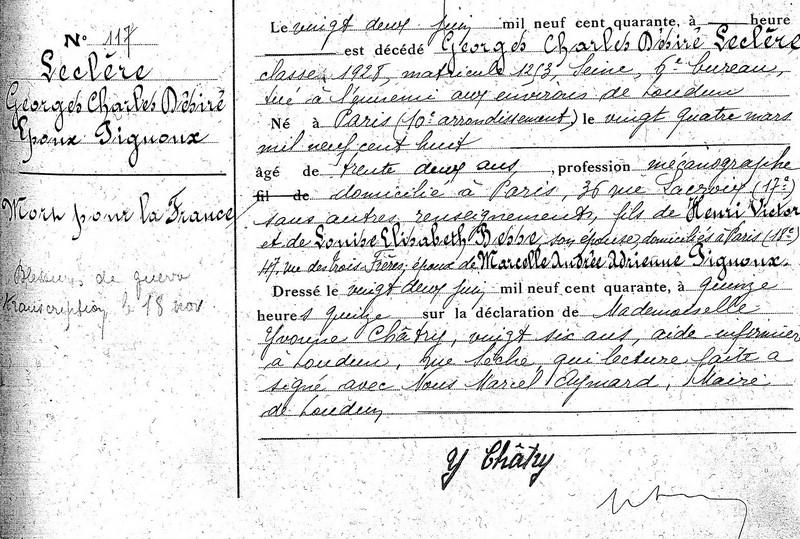 N° 117
Leclère
Georges Charles Désiré
Epoux Pignoux
Mort pour la France
Blessure de guerre
transcription le 18 nov
Le vingt deux juin mil neuf cent quarante, à — heure
— est décédé Georges Charles Désiré Leclère
classe 1928, matricule 1253, Seine, 6e bureau,
tué à l'ennemi aux environs de Loudun
Né à Paris (10e arrondissement) le vingt quatre mars
mil neuf cent huit
âgé de trente deux ans, profession mécanographe
fil de domicilié à Paris, 36 rue Lacroix (17e)
sans autres renseignements, fils de Henri Victor
et de Louise Elisabeth Beppe, son épouse, domiciliés à Paris (18e)
47, rue des trois Frères, époux de Marcelle Andrée Adrienne Pignoux.
Dressé le vingt deux juin mil neuf cent quarante, à quinze
heures quinze sur la déclaration de Mademoiselle
Yvonne Châtry, vingt six ans, aide infirmière
à Loudun, rue Sèche, qui lecture faite a
signé avec Nous Marcel Aymard, Maire
de Loudun
Y Châtry